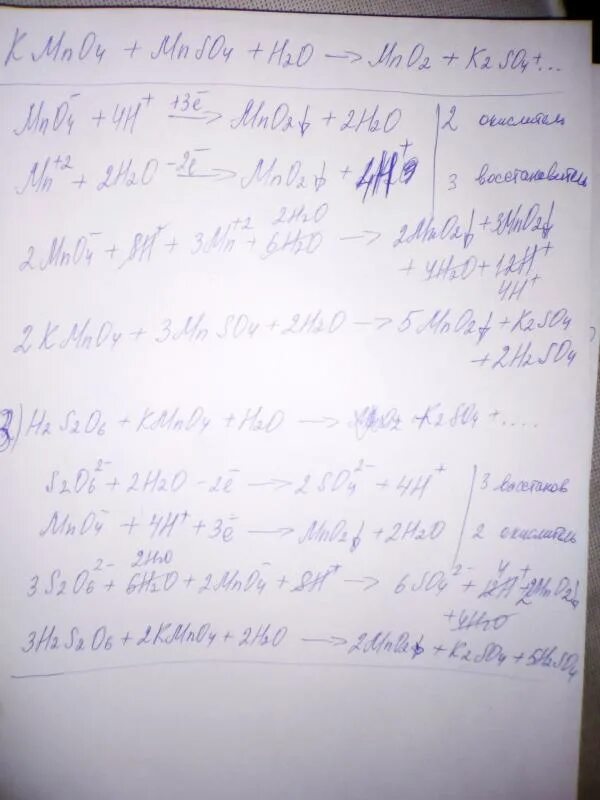 KMnO4 + MnSO4 + H2O → MnO2 + K2SO4 + ...
MnO4⁻ + 4H⁺ +3ē → MnO2↓ + 2H2O | 2 окислитель
Mn⁺² + 2H2O −2ē → MnO2↓ + 4H⁺ | 3 восстановитель
2H2O
2MnO4⁻ + 8H⁺ + 3Mn⁺² + 6H2O → 2MnO2↓ + 3MnO2↓
+ 4H2O + 12H⁺
4H⁺
2KMnO4 + 3MnSO4 + 2H2O → 5MnO2↓ + K2SO4
+ 2H2SO4
2) H2S2O6 + KMnO4 + H2O → MnO2 + K2SO4 + ....
S2O6²⁻ + 2H2O − 2ē → 2SO4²⁻ + 4H⁺ | 3 восстанов
MnO4⁻ + 4H⁺ + 3ē → MnO2↓ + 2H2O | 2 окислитель
2H2O 4
3S2O6²⁻ + 6H2O + 2MnO4⁻ + 8H⁺ → 6SO4²⁻ + 12H⁺ + 2MnO2↓
+ 4H2O
3H2S2O6 + 2KMnO4 + 2H2O → 2MnO2↓ + K2SO4 + 5H2SO4